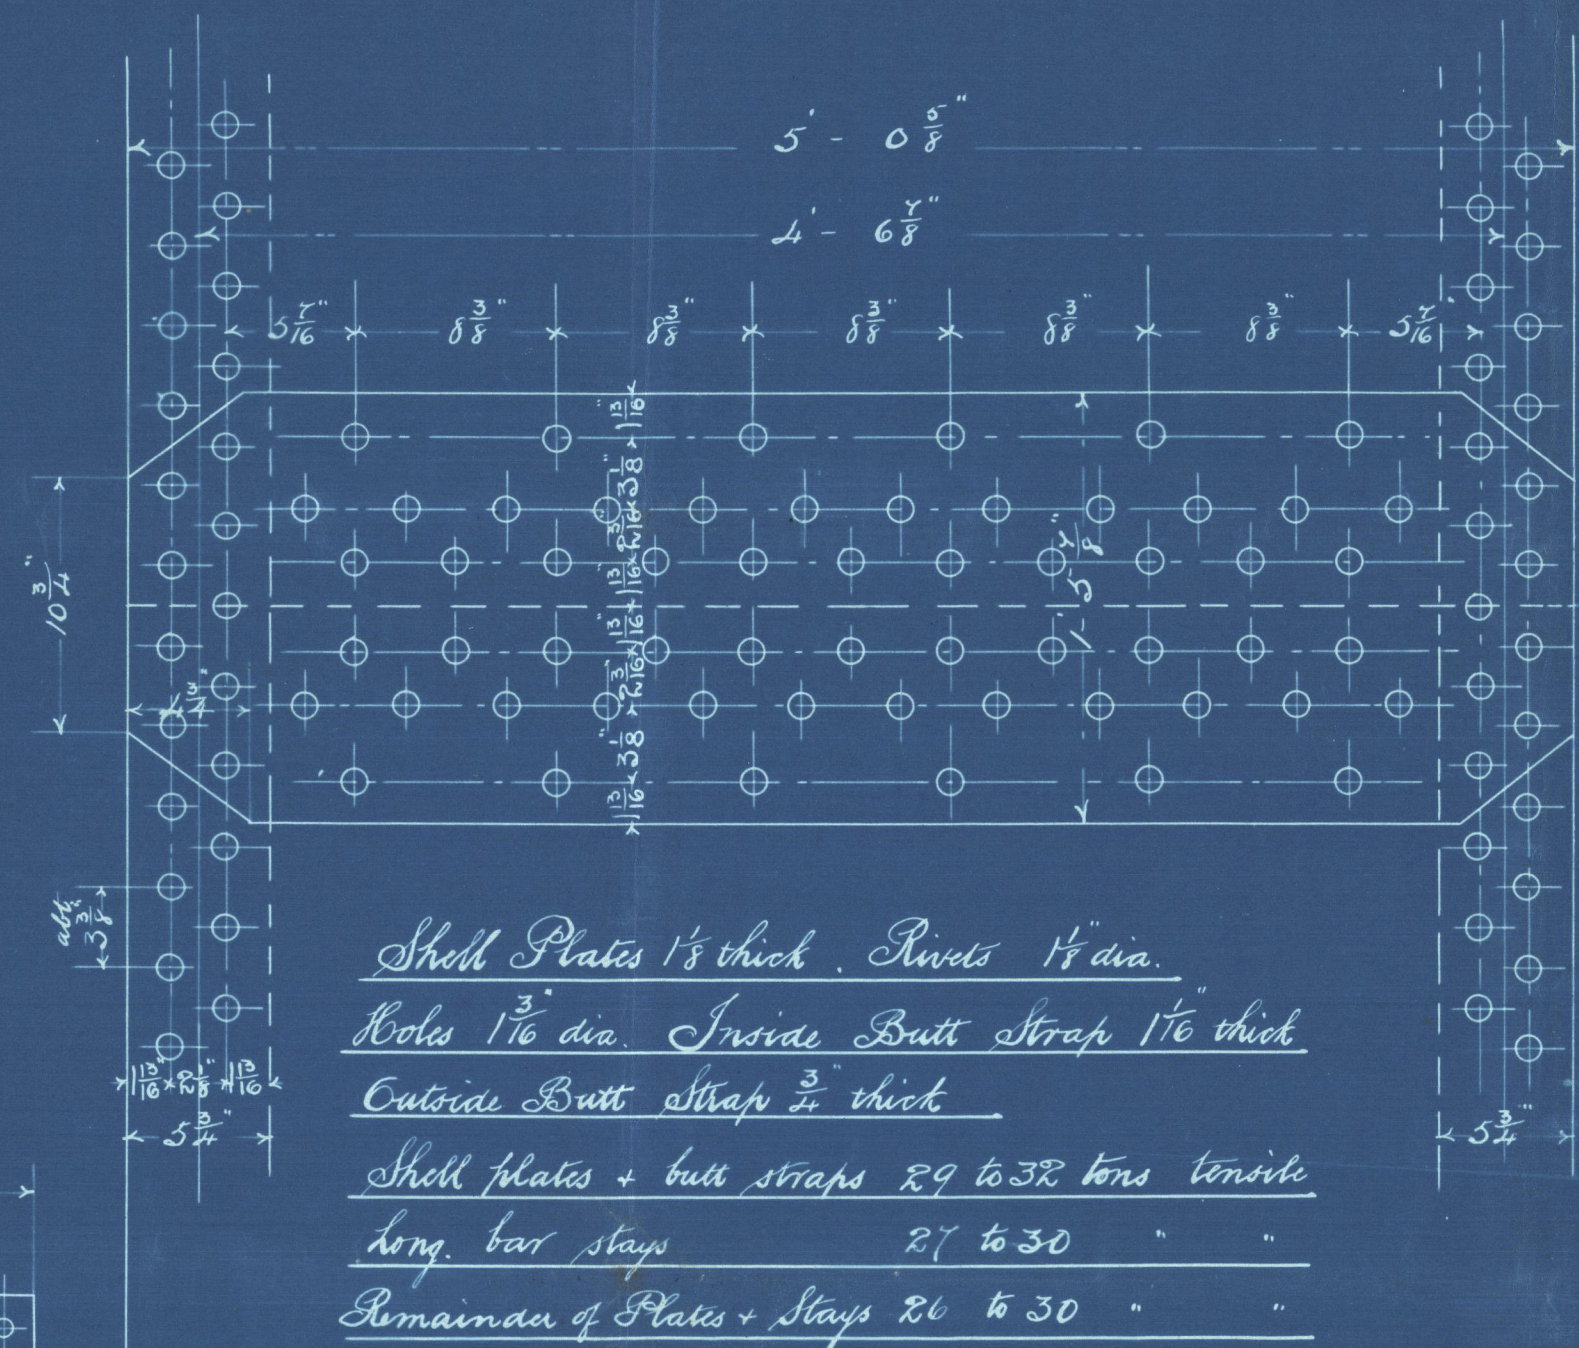 5' - 0 5/8"
4' - 6 7/8"
5 7/16" 8 3/8" 8 3/8" 8 3/8" 8 3/8" 8 3/8" 5 7/16"
1 13/16" 3 1/8" 2 3/16" 1 13/16 1 13/16 2 3/16" 3 1/8" 1 13/16"
1' - 5 7/8"
10 3/4"
abt. 3 3/8"
1 13/16" 2 1/8" 1 13/16"
5 3/4"
5 3/4"
Shell Plates 1 1/8 thick. Rivets 1 1/8" dia.
Holes 1 3/16" dia. Inside Butt Strap 1 1/16" thick
Outside Butt Strap 3/4" thick
Shell plates + butt straps 29 to 32 tons tensile
Long. bar stays 27 to 30 " "
Remainder of Plates + Stays 26 to 30 " "